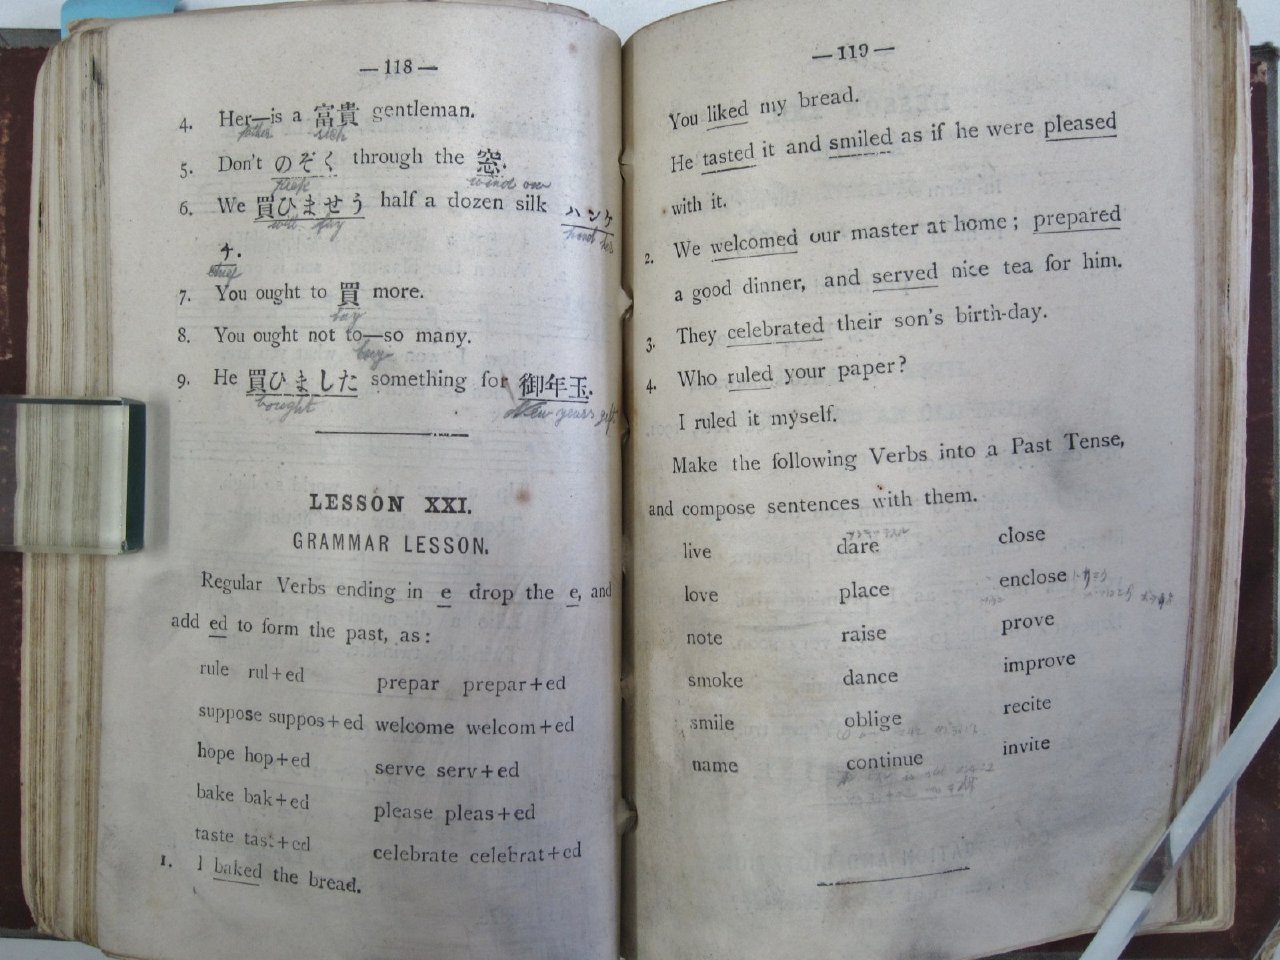 —118—
4. Her—is a 富貴 gentleman.
father rich
5. Don't のぞく through the 窓.
peep window
6. We 買ひませう half a dozen silk ハンケ
will buy hand ker
チ.
chief
7. You ought to 買 more.
buy
8. You ought not to—so many.
buy
9. He 買ひました something for 御年玉.
bought New years gift
LESSON XXI.
GRAMMAR LESSON.
Regular Verbs ending in e drop the e, and
add ed to form the past, as:
rule rul+ed prepar prepar+ed
suppose suppos+ed welcome welcom+ed
hope hop+ed serve serv+ed
bake bak+ed please pleas+ed
taste tast+ed celebrate celebrat+ed
1. I baked the bread.
—119—
You liked my bread.
He tasted it and smiled as if he were pleased
with it.
2. We welcomed our master at home; prepared
a good dinner, and served nice tea for him.
3. They celebrated their son's birth-day.
4. Who ruled your paper?
I ruled it myself.
Make the following Verbs into a Past Tense,
and compose sentences with them.
live dare close
love place enclose
note raise prove
smoke dance improve
smile oblige recite
name continue invite